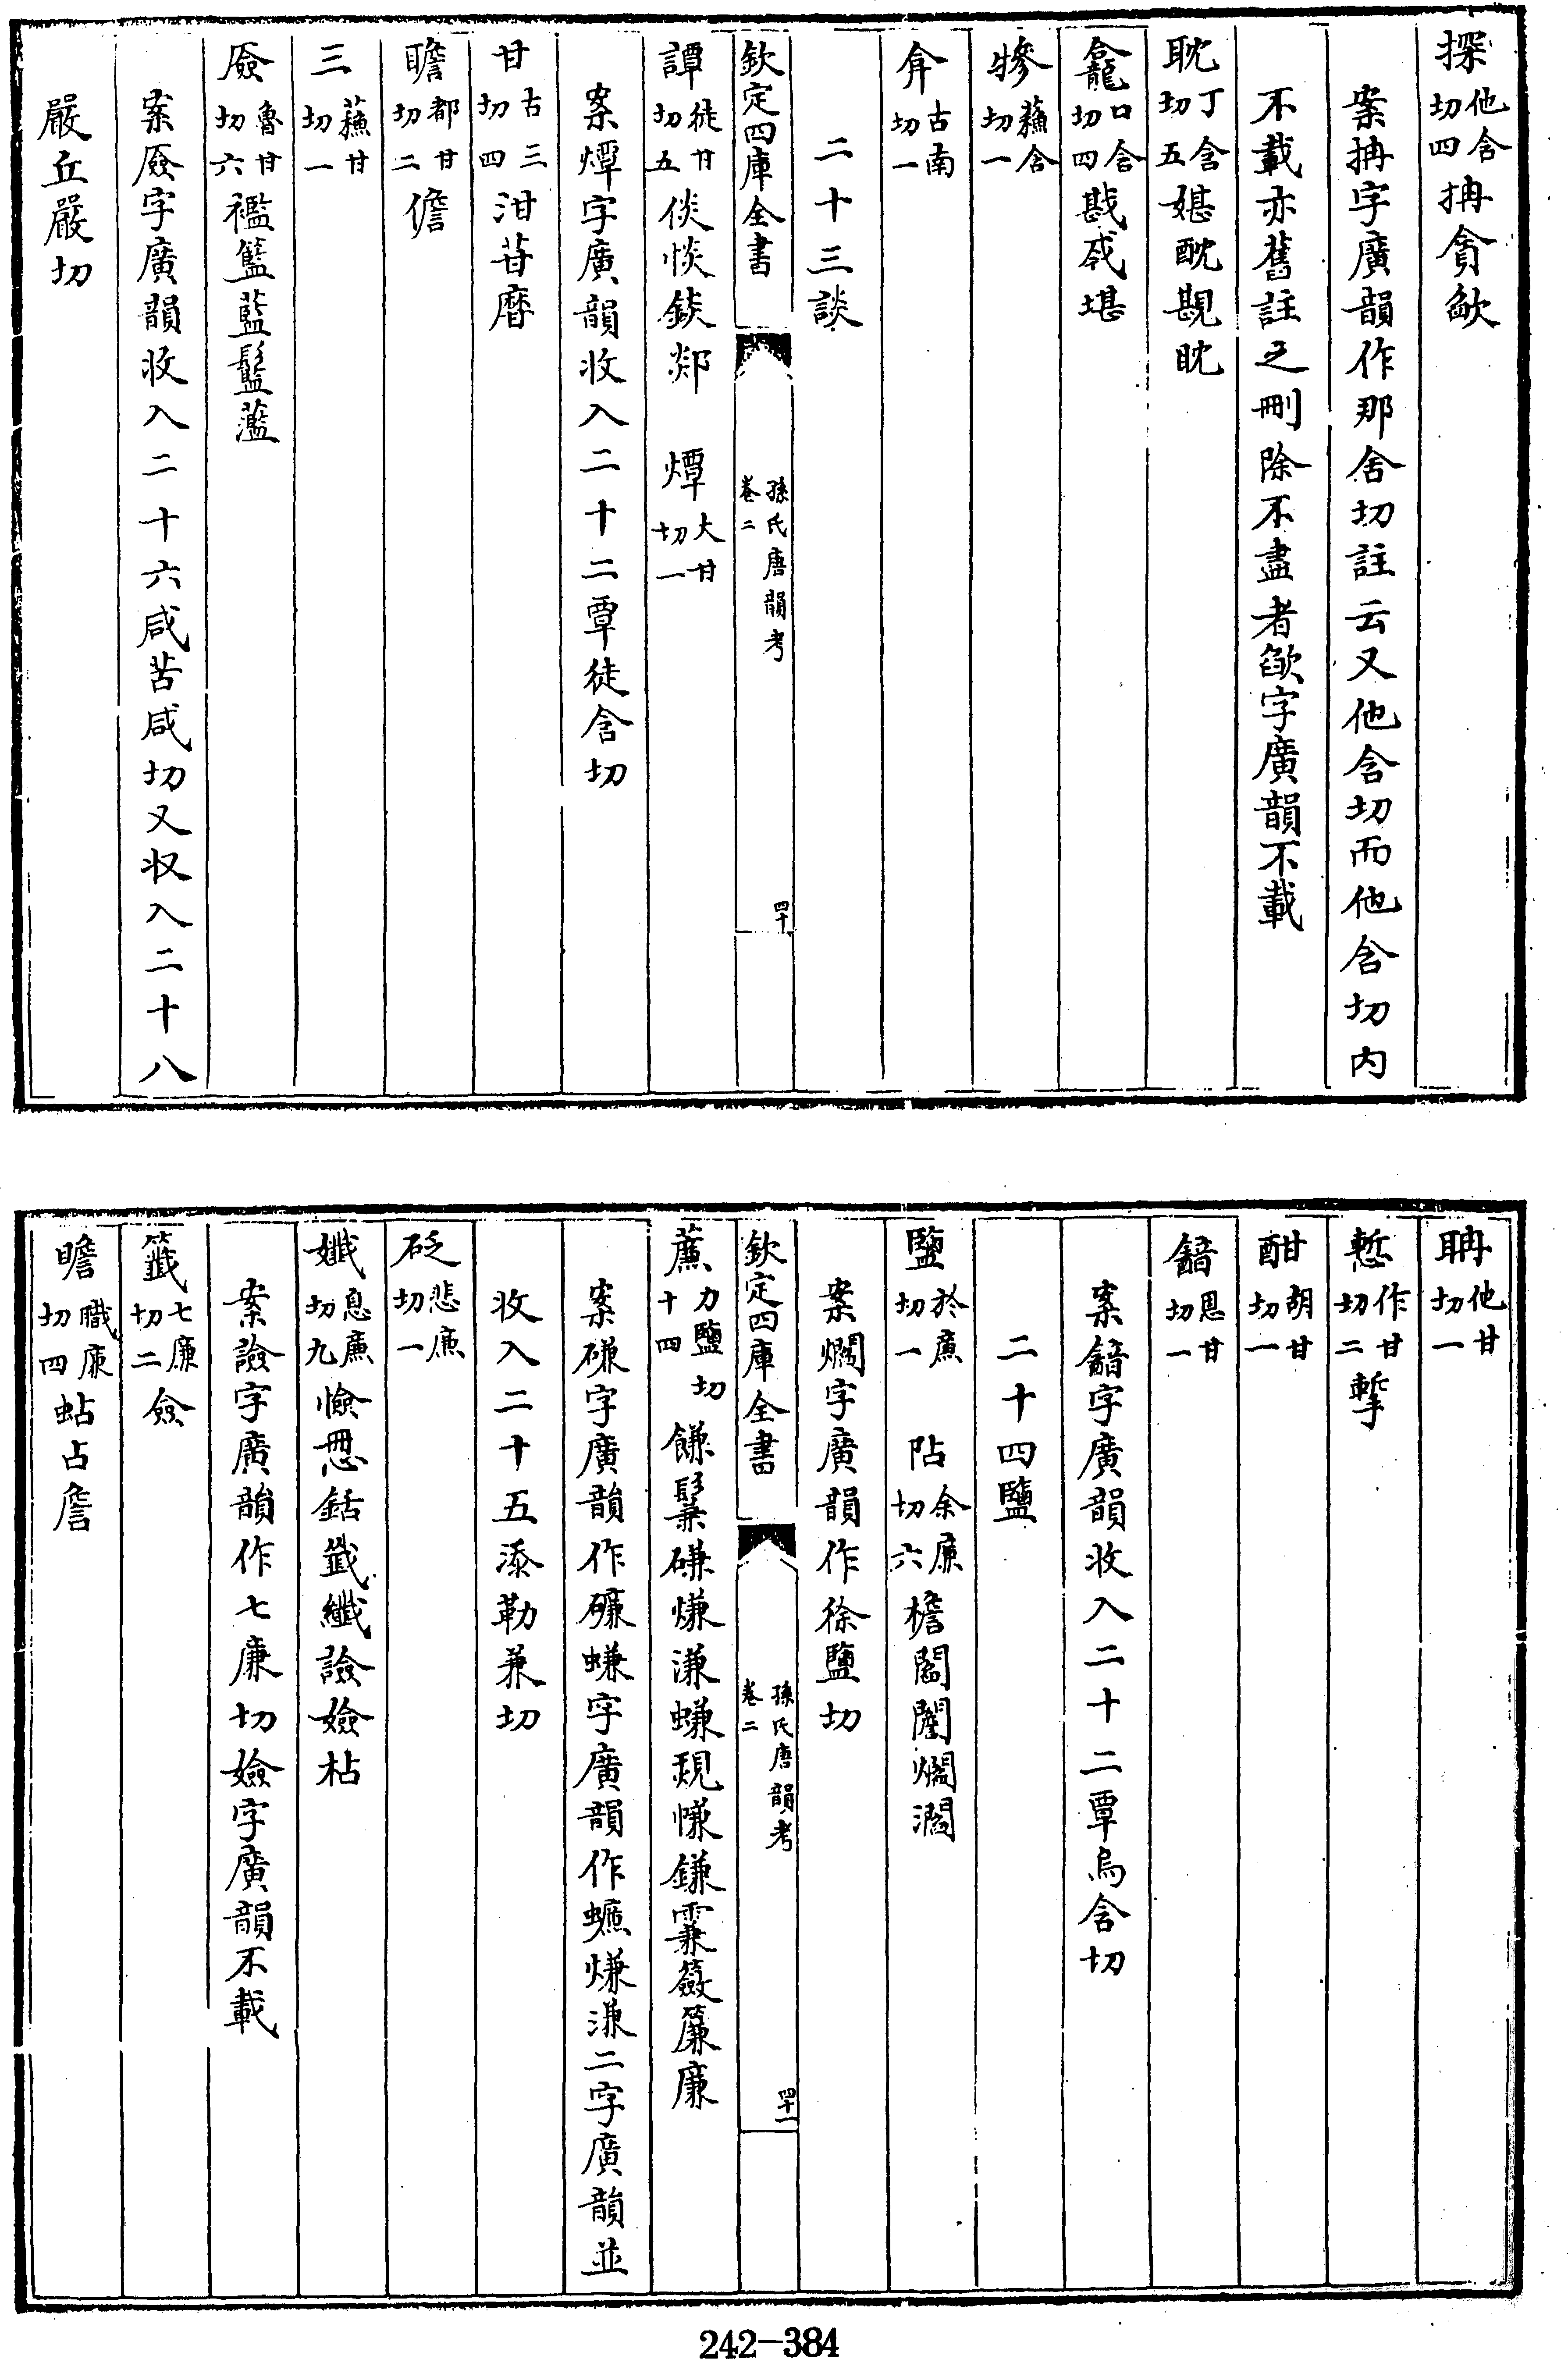 探他含切四抩貪㰸
案抩字廣韻作那含切註云又他含切而他含切内
不載亦舊註之刪除不盡者㰸字廣韻不載
耽丁含切五媅酖覴眈
龕口含切四戡㦰堪
犙蘓含切一
弇古南切一
二十三談
欽定四庫全書
孫氏唐韻考
卷二
四十
譚徒甘切五倓惔錟郯 燂大甘切一
案燂字廣韻收入二十二覃徒含切
甘古三切四泔苷磿
聸都甘切二儋
三蘓甘切一
厱魯甘切六襤籃藍鬛灆
案厱字廣韻收入二十六咸苦咸切又收入二十八
嚴丘嚴切
聃他甘切一
慙作甘切二㨻
酣胡甘切一
韽恩甘切一
案韽字廣韻收入二十二覃烏含切
二十四鹽
鹽於廉切一 阽余廉切六檐閻闦爓灍
案爓字廣韻作徐鹽切
欽定四庫全書
孫氏唐韻考
卷二
四十一
薕力鹽切十四 䭑鬑磏熑溓蠊覝慊鎌霢籢簾廉
案磏字廣韻作礛蠊字廣韻作蠊熑溓二字廣韻並
收入二十五添勒兼切
砭悲廉切一
孅息廉切九憸思銛籤纖譣嬐枮
案譣字廣韻作七廉切嬐字廣韻不載
籤七廉切二僉
瞻職廉切四蛅占詹
242-384